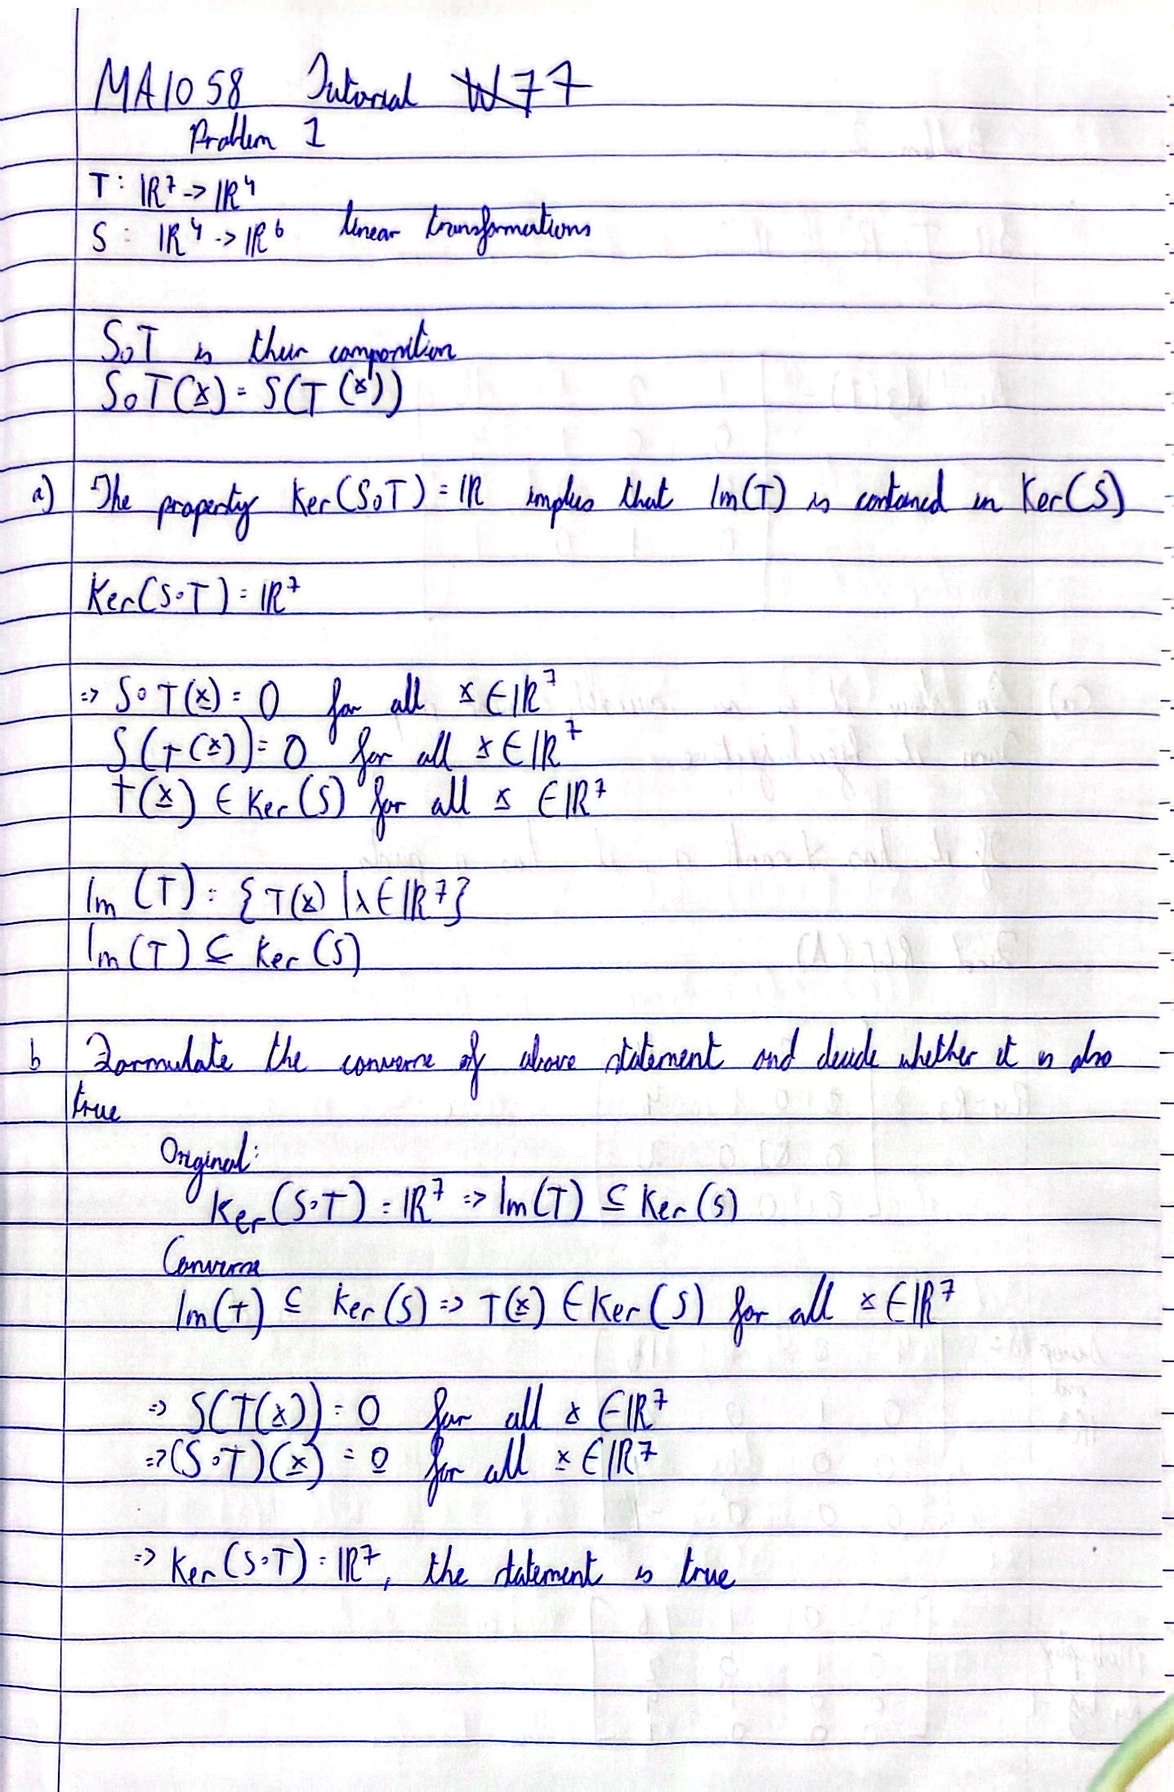 MA1058 Tutorial W77
Problem 1
T: ℝ⁷ -> ℝ⁴
S: ℝ⁴ -> ℝ⁶ linear transformations
S∘T is their composition
S∘T(x) = S(T(x))
a) The property Ker(S∘T) = ℝ implies that Im(T) is contained in Ker(S)
Ker(S∘T) = ℝ⁷
=> S∘T(x) = 0 for all x ∈ ℝ⁷
S(T(x)) = 0 for all x ∈ ℝ⁷
T(x) ∈ Ker(S) for all x ∈ ℝ⁷
Im(T) = {T(x) | x ∈ ℝ⁷}
Im(T) ⊆ Ker(S)
b Formulate the converse of above statement and decide whether it is also
true
Original:
Ker(S∘T) = ℝ⁷ => Im(T) ⊆ Ker(S)
Converse
Im(T) ⊆ Ker(S) => T(x) ∈ Ker(S) for all x ∈ ℝ⁷
=> S(T(x)) = 0 for all x ∈ ℝ⁷
=> (S∘T)(x) = 0 for all x ∈ ℝ⁷
=> Ker(S∘T) = ℝ⁷, the statement is true